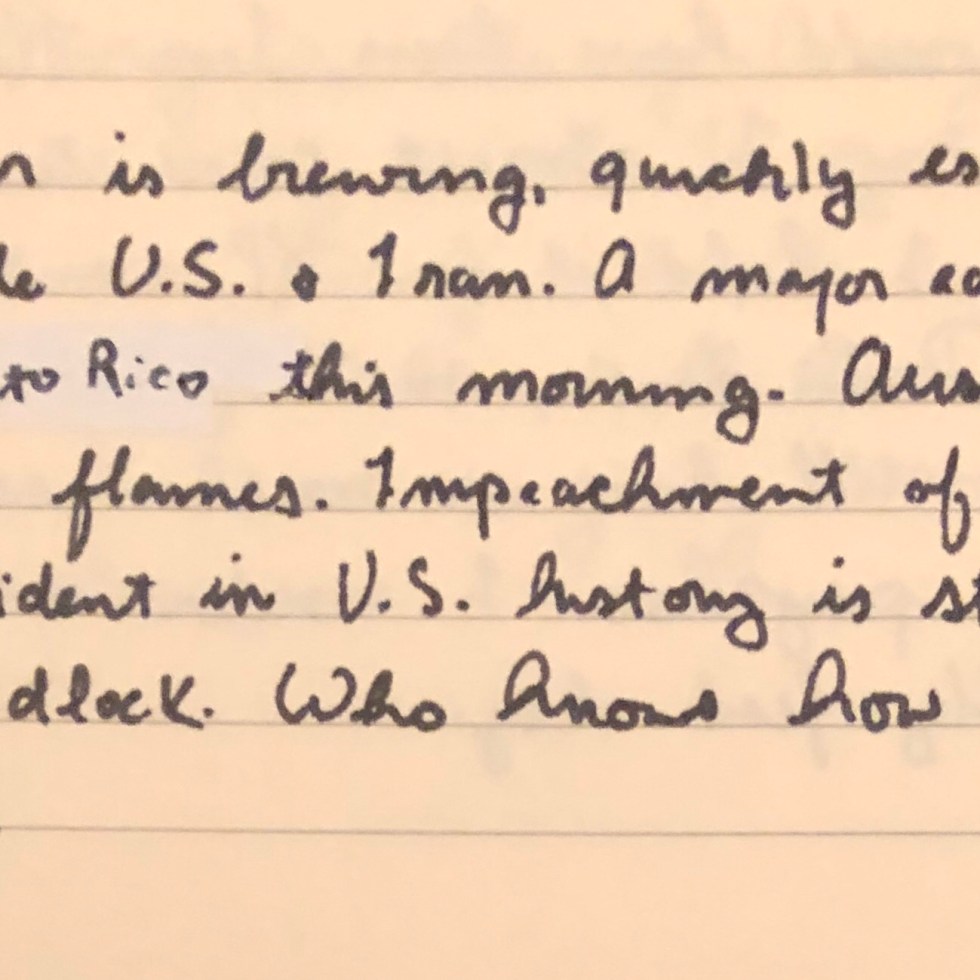 is brewing, quickly es
U.S. & Iran. A major ea
to Rico this morning. Aus
flames. Impeachment of
ident in U.S. history is st
dlock. Who knows how